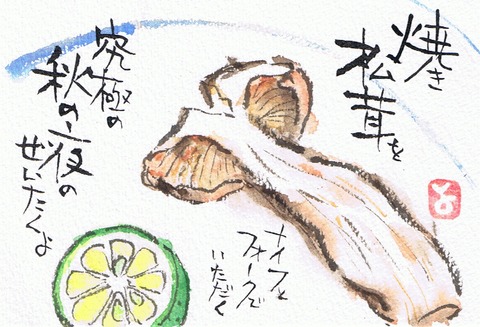 焼き
松茸を
ナイフと
フォークで
いただく
究極の
秋の夜の
ぜいたくよ